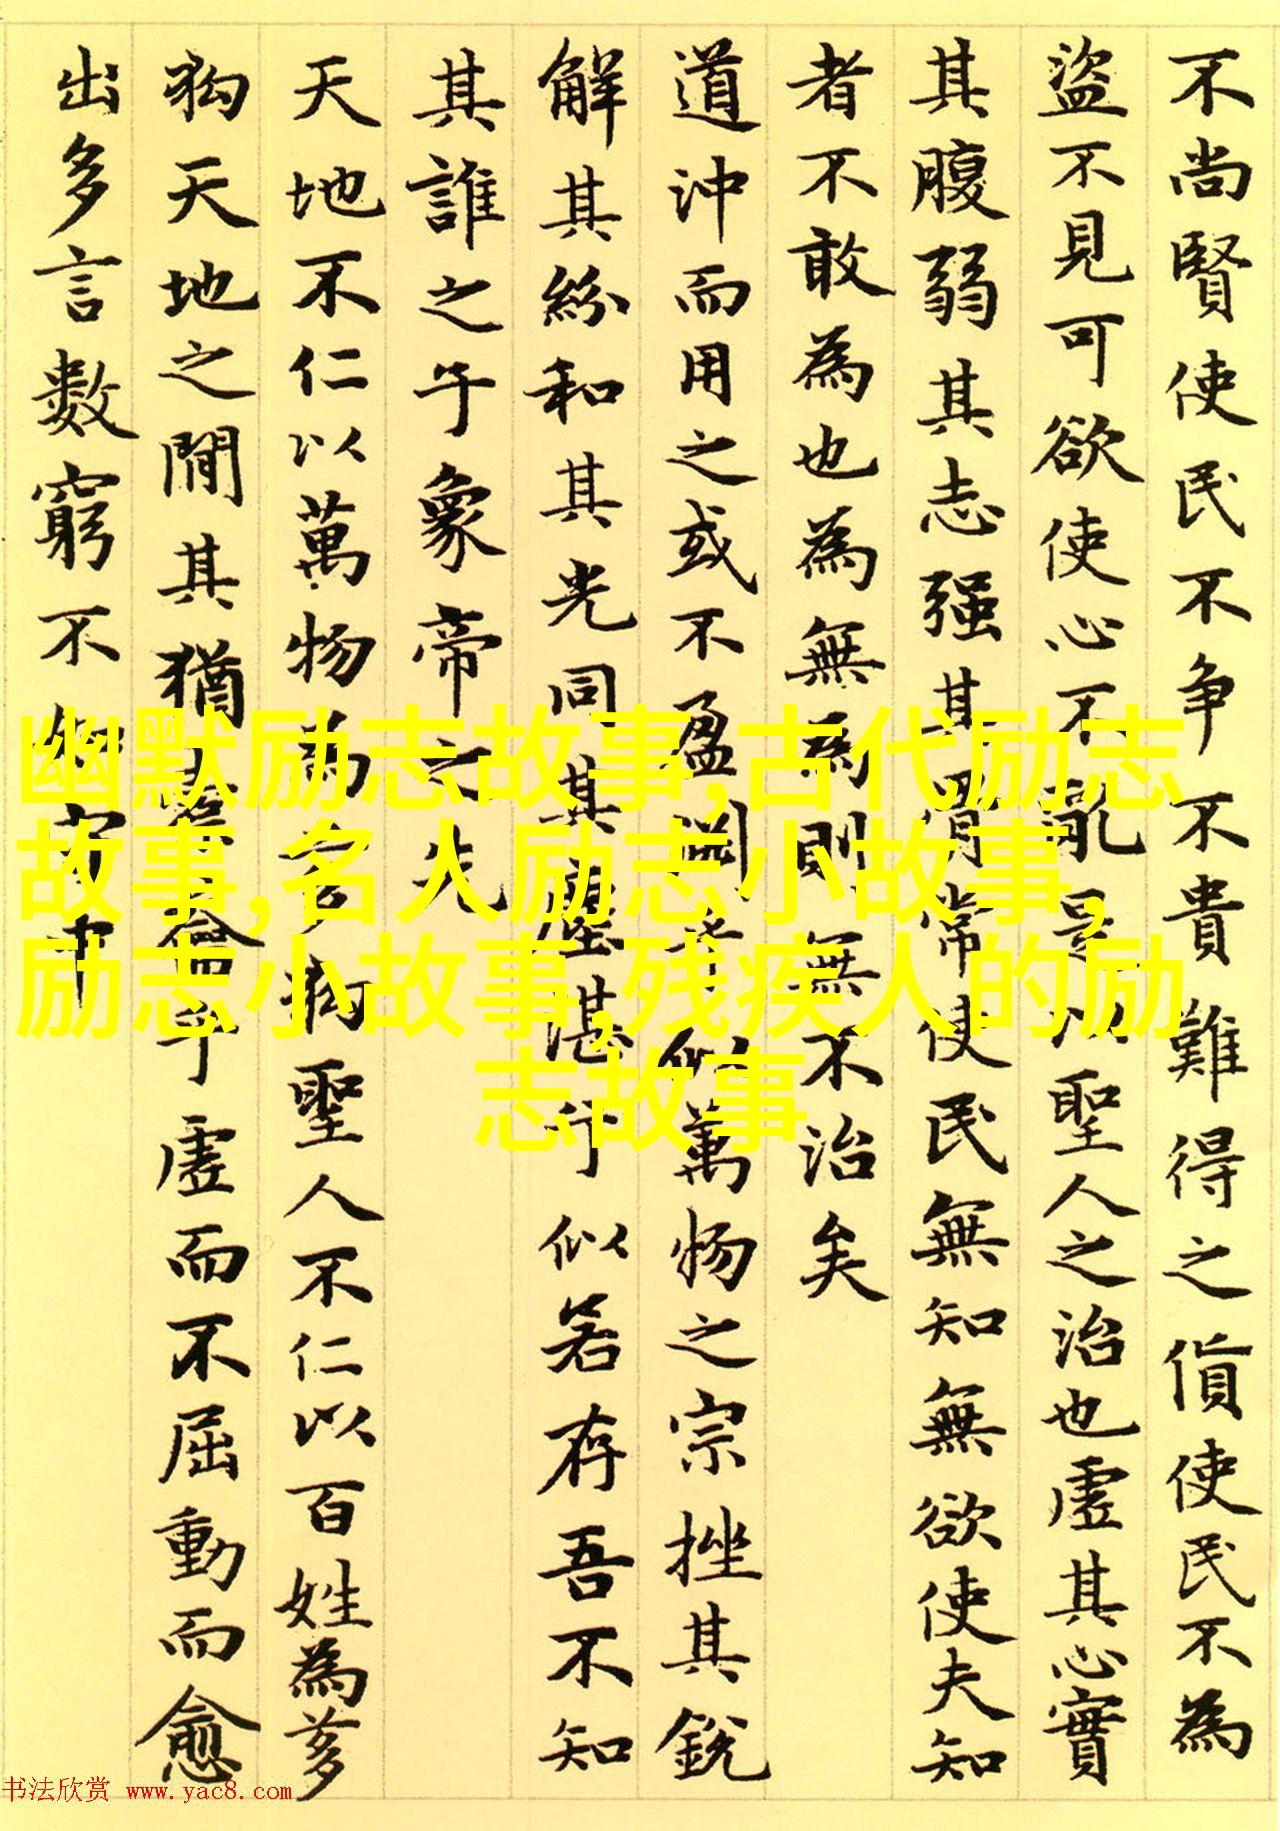 不尚賢使民不争不貴難得之貨使民不為
盜不見可欲使心不亂是以聖人之治也虛其心實
其腹弱其志强其骨常使民無知無欲使夫知
者不敢為也為無為則無不治矣
道沖而用之或不盈淵乎似萬物之宗挫其銳
解其紛和其光同其塵湛兮似若存吾不知
其誰之子象帝之先
天地不仁以萬物為芻狗聖人不仁以百姓為芻
狗天地之間其猶橐龠乎虛而不屈動而愈
出多言數窮不如守中
幽默励志故事,古代励志
故事,名人励志小故事,
励志小故事,残疾人的励
志故事
书法欣赏 www.yac8.com